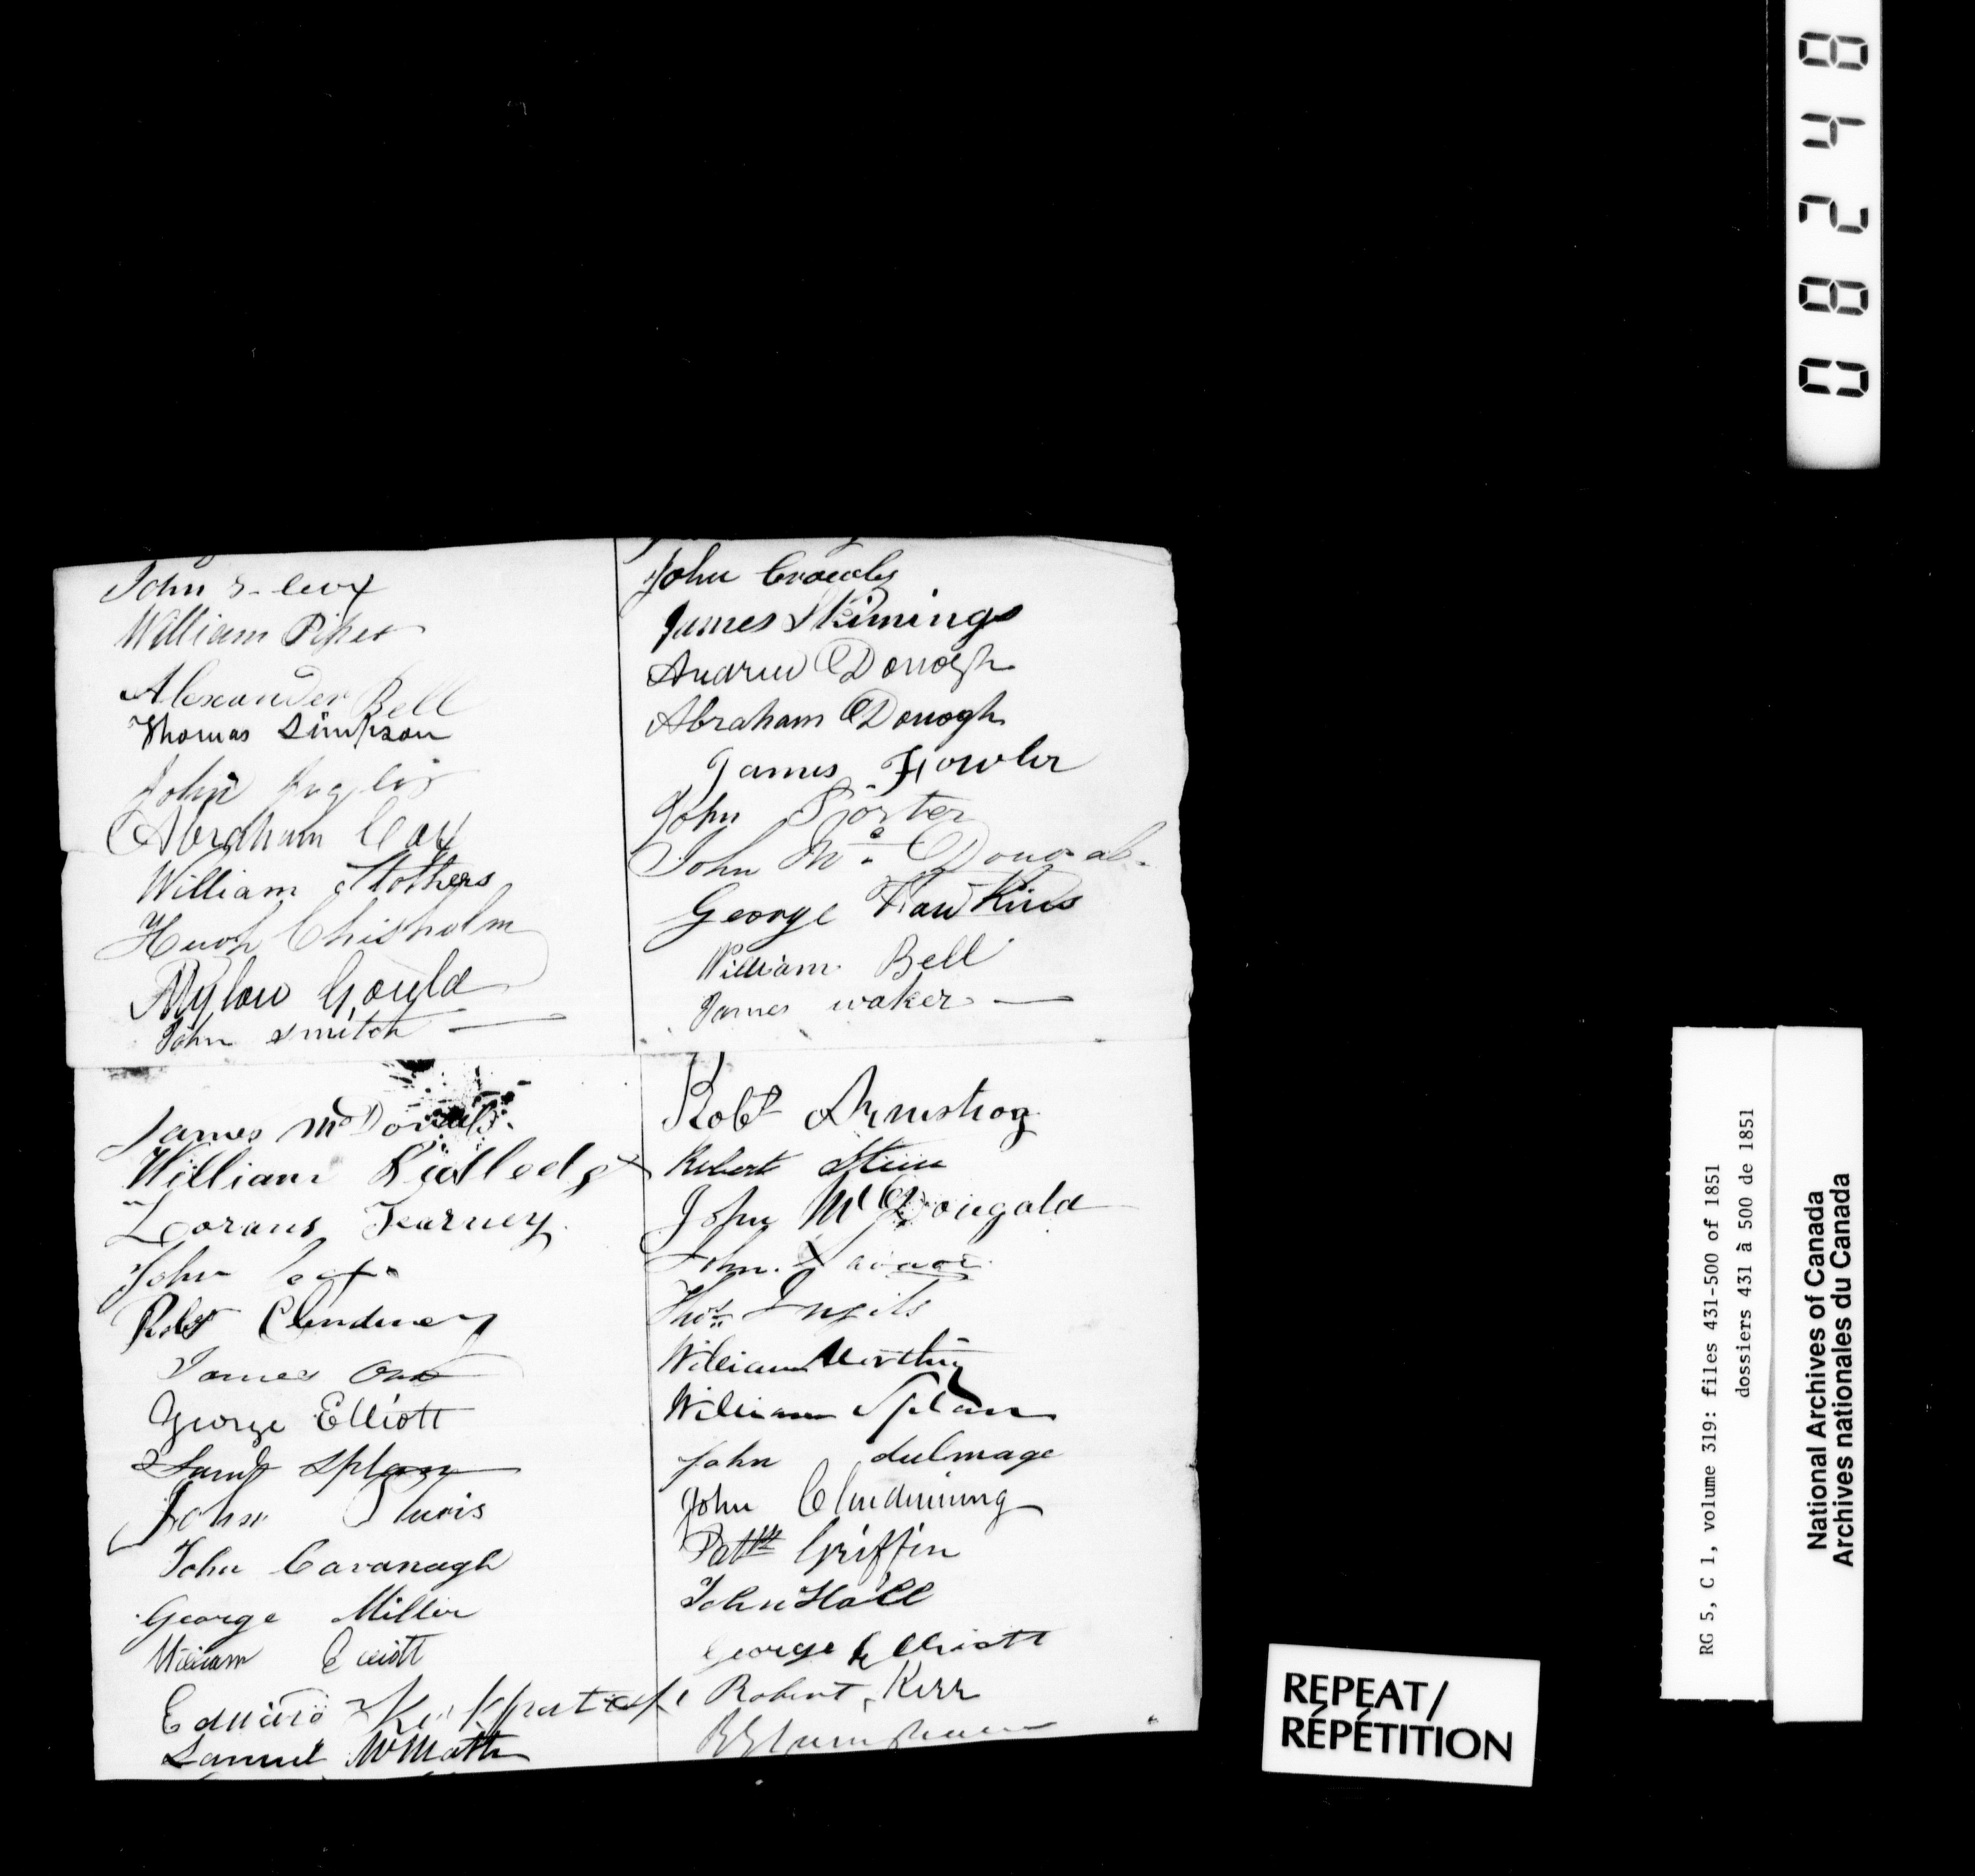 John
William Piker
Alexander Bell
Thomas Simpson
John Inglis
Abraham Cox
William Stothers
Hugh Chisholm
Mylow Gould
John Smitch
James McDonald
William Rutledge
Lorans Kearney
John
Robt Clendeney
James Orr
George Elliott
Saml Splan
John Sturis
John Cavanagh
George Miller
William Elliott
Edward Kirkpatrick
Samuel McMath
John Crowley
James Skimings
Andrew ODonogh
Abraham ODonogh
James Fowler
John Porter
John Mc
George Hawkins
William Bell
James waker
Robt Armstrog
Robert Stuu
John McDougald
John Savage
Thos Ingils
William Worthy
William Splan
John dulmage
John Clindinning
Patk Griffin
John Hall
George Elliott
Robert Kerr
08248
RG 5, C 1, volume 319: files 431-500 of 1851
dossiers 431 à 500 de 1851
National Archives of Canada
Archives nationales du Canada
REPEAT/
RÉPÉTITION